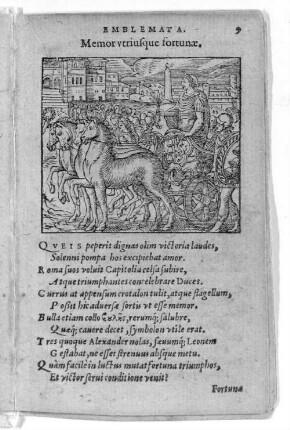 EMBLEMATA. 9
Memor vtriusque fortunæ.
QVEIS peperit dignas olim victoria laudes,
Solenni pompa hos excipiebat amor.
Roma suos voluit Capitolia celsa subire,
Atque triumphantes concelebrare Duces.
Currus at appensum crotalon tulit, atque flagellum,
Posset hic aduersæ sortis vt esse memor.
Bulla etiam collo rerumq; salubre,
Quæq; cauere decet, symbolon vtile erat.
Tres quoque Alexander nolas, sæuumq; Leonem
Gestabat, ne esset strenuus absque metu.
Quàm facilè in luctus mutat fortuna triumphos,
Et victor serui conditione venit?
Fortuna